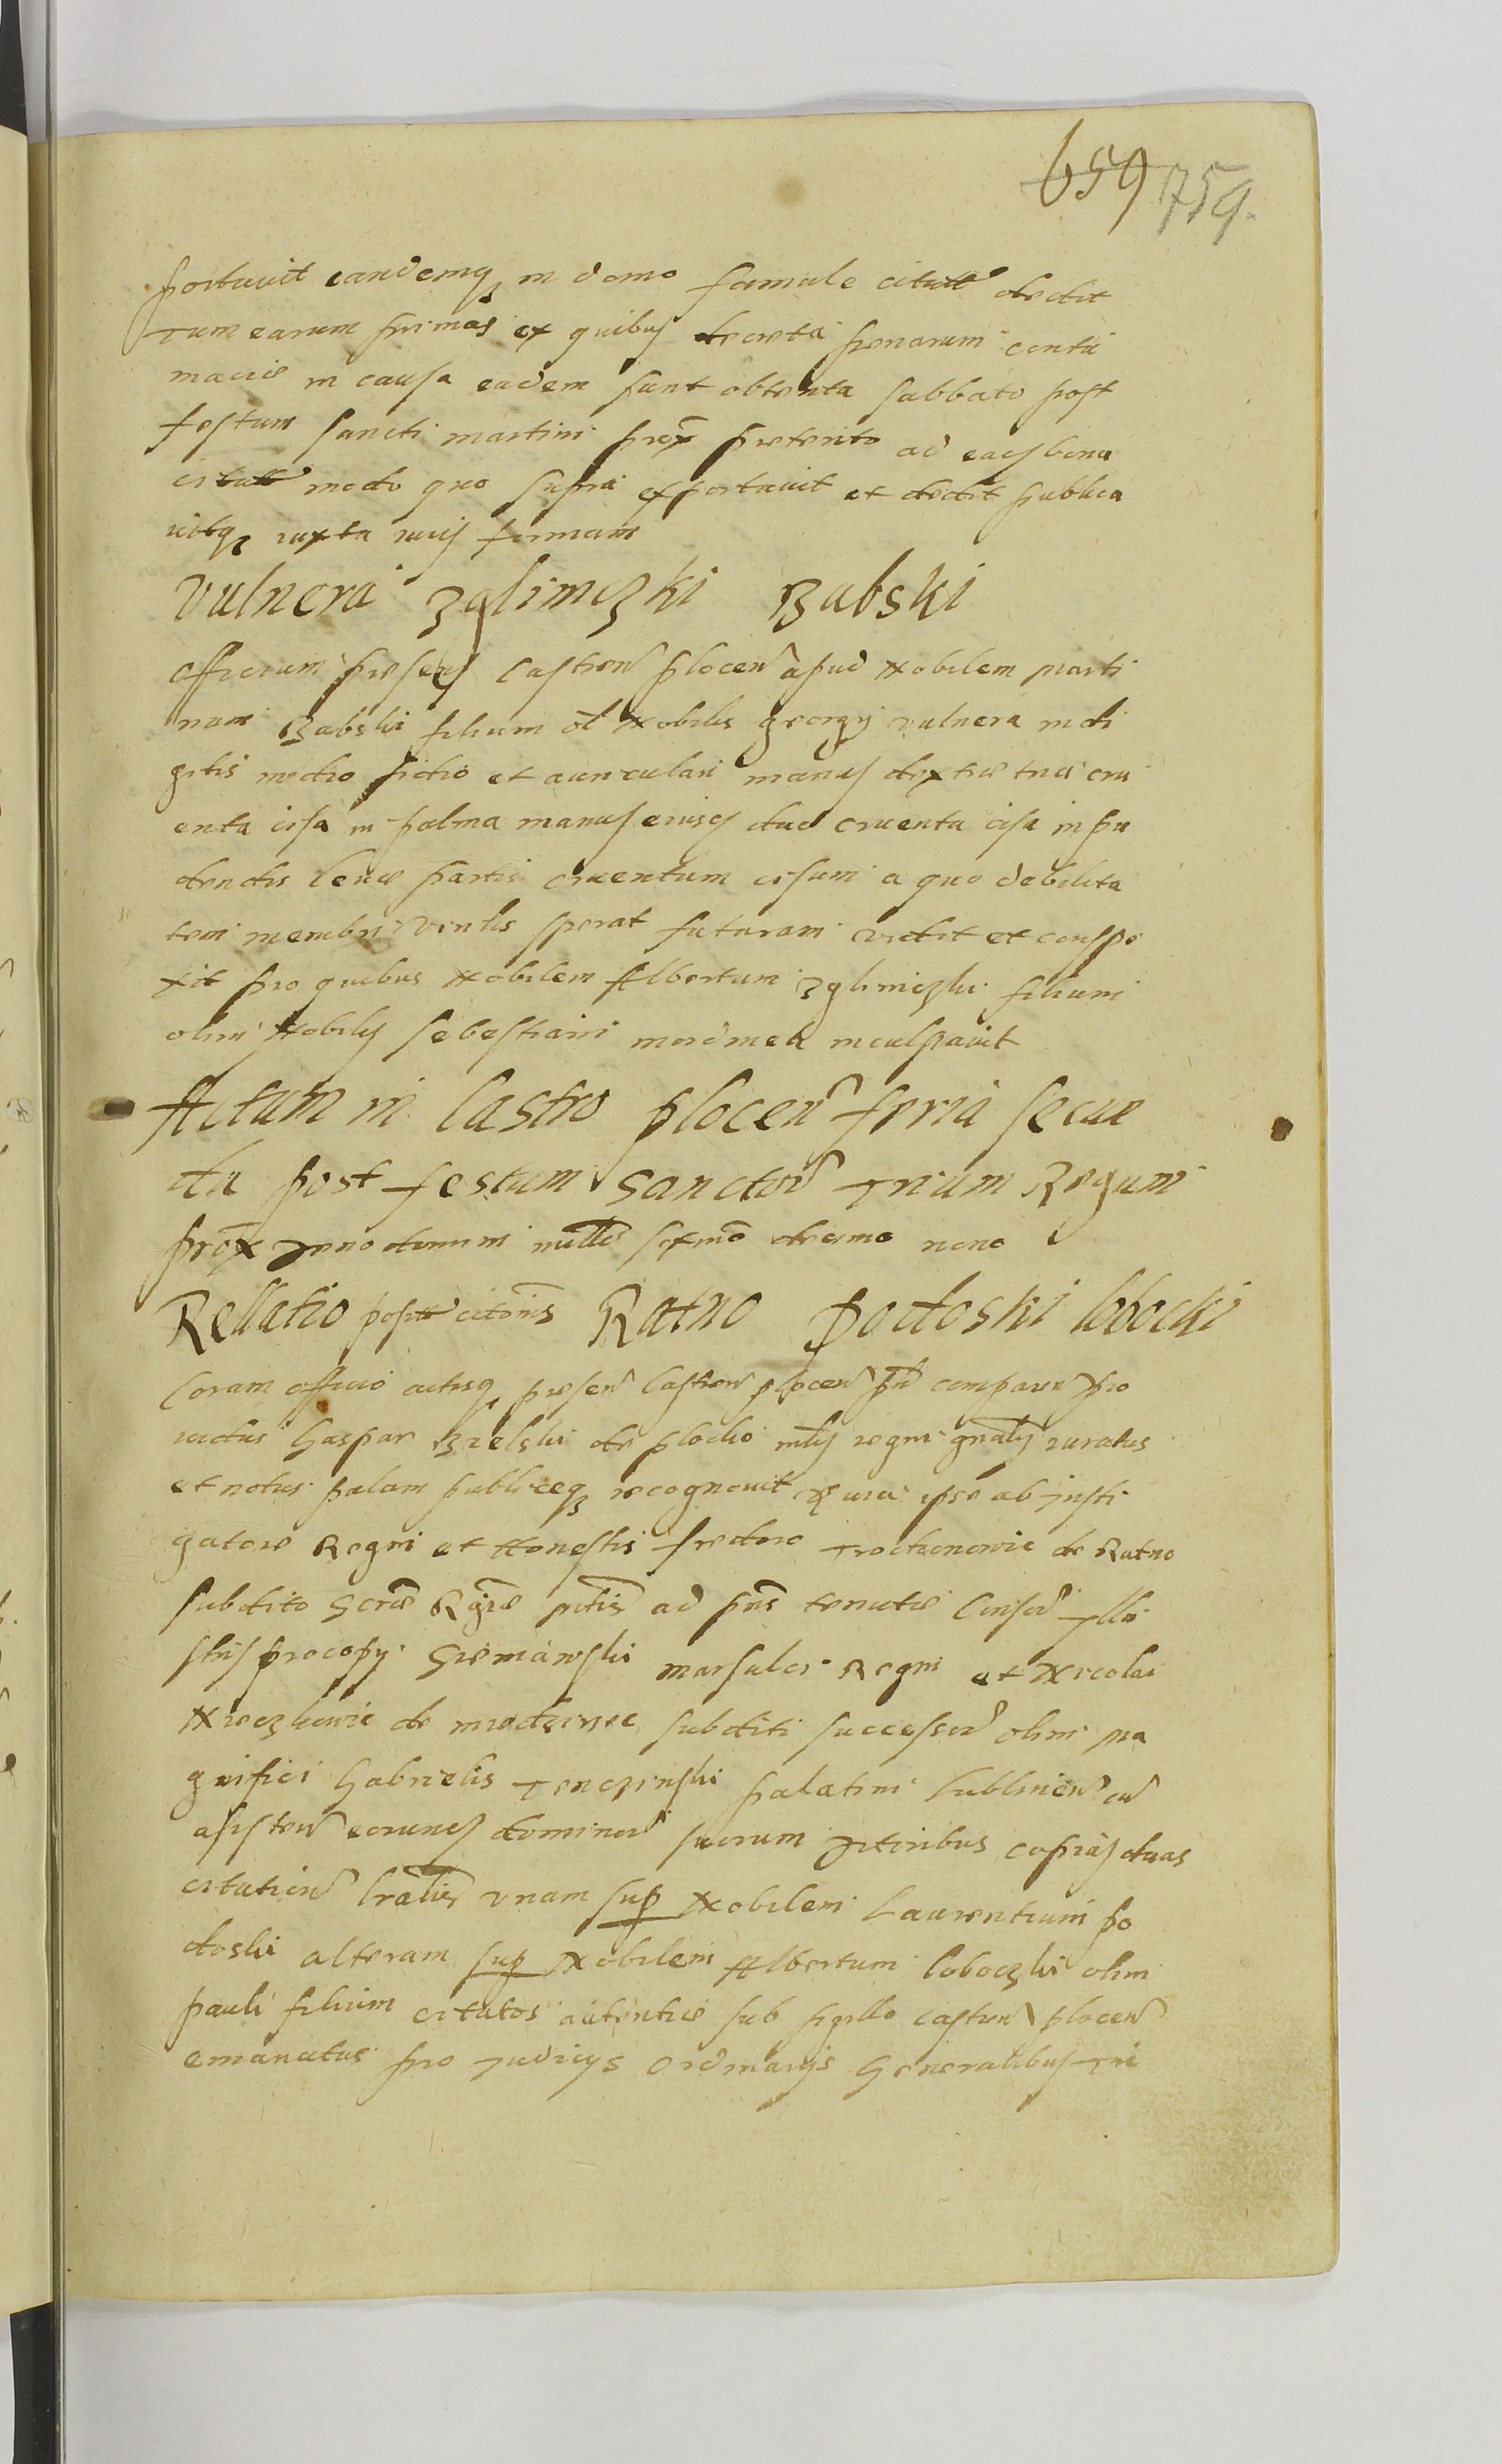 659 759.
portauit eandemq₃ in domo famule citatt dedit
Tum earum primas ex quibus decreta penarum contu
macie in causa eadem sunt obtenta sabbato post
festum sancti martini prox preterito ad easq bona
citatt modo quo supra exportauit et dedit publica
uitq₃ iuxta iuris formam
Vulnera Zglimczki Babski
Officium presens Castren plocen apud Nobilem marti
num Babski filium ol Nobilis georgij vulnera in di
gitis medio sidio et auriculari manus dextre tria cru
enta cisa in palma manus eiusq duo cruenta cisa in pu
dendis leue partis cruentum cisum a quo debilita
tem membri virilis sperat futuram vidit et conspe
xit pro quibus Nobilem Albertum Zgliniczki filium
olim Nobilis sebestiani inculpauit
Actum in Castro plocen feria secun
da post festum Sanctor Trium Regum
prox Anno domini mille sexmo decimo nono
Rellatio positt citonis Ratno Podoski lobocki
Coram officio actisq₃ presen Castren plocen psn comparen pro
uidus Gaspar Bielski de plocko mlis regni gnalis iuratus
et notus palam publiceq₃ recognouit Quia ipse ab insti
gatore Regni et Honestis fredero Trochimowic de Ratno
subdito Scrae Rgiae mttis ad pns tenute Consor Illu
stris procopy Sieniawski marsalci Regni et Nicolai
Nieczkowic de subditi successor olim ma
gnifici Gabrielis Tenczinski palatini lublinen cu
assisten eorunq dominor suorum Actoribus copias duas
citation lralis vnam sup Nobilem Laurentium po
doski alteram sup Nobilem Albertum loboczki olim
pauli filium citatos autentice sub sigillo castren plocen
emanatas pro Iudicijs Ordinarijs Generalibus Tri